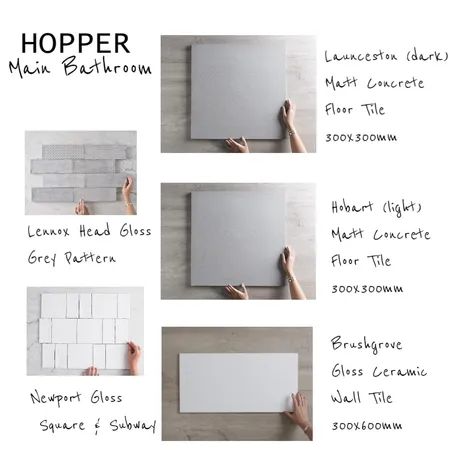 HOPPER
Main Bathroom
Launceston (dark)
Matt Concrete
Floor Tile
300x300mm
Lennox Head Gloss
Grey Pattern
Hobart (light)
Matt Concrete
Floor Tile
300x300mm
Newport Gloss
Square & Subway
Brushgrove
Gloss Ceramic
Wall Tile
300x600mm